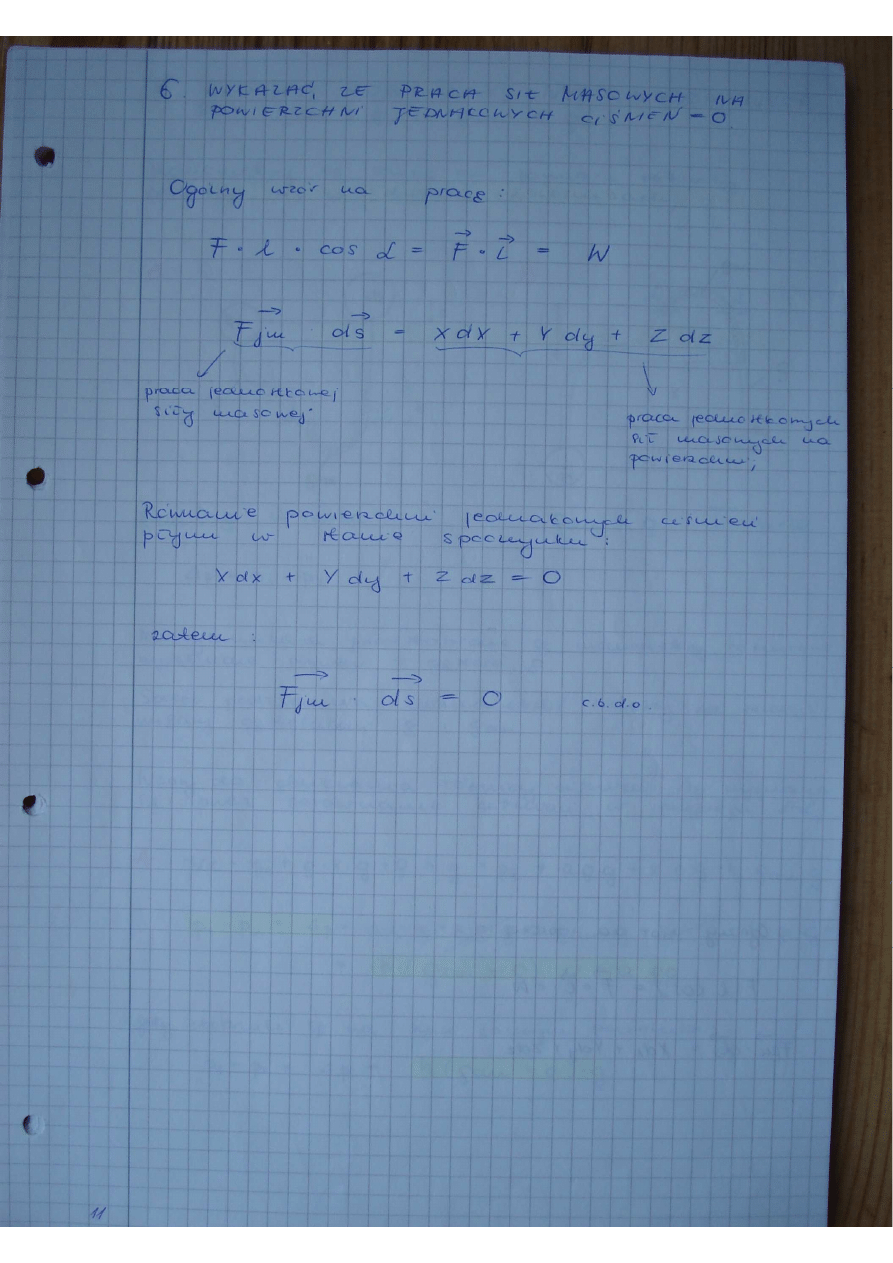 6. WYKAZAĆ, ŻE PRACA SIŁ MASOWYCH NA
POWIERZCHNI JEDNAKOWYCH CIŚNIEŃ = 0.
Ogólny wzór na pracę :
F · l · cos α = F⃗ · L⃗ = W
F⃗jm · ds⃗ = X dx + Y dy + Z dz
praca jednostkowej
siły masowej
praca jednostkowych
sił masowych na
powierzchni,
Równanie powierzchni jednakowych ciśnień
płynu w stanie spoczynku :
X dx + Y dy + Z dz = 0
zatem :
F⃗jm · ds⃗ = 0 c.b.d.o.
11